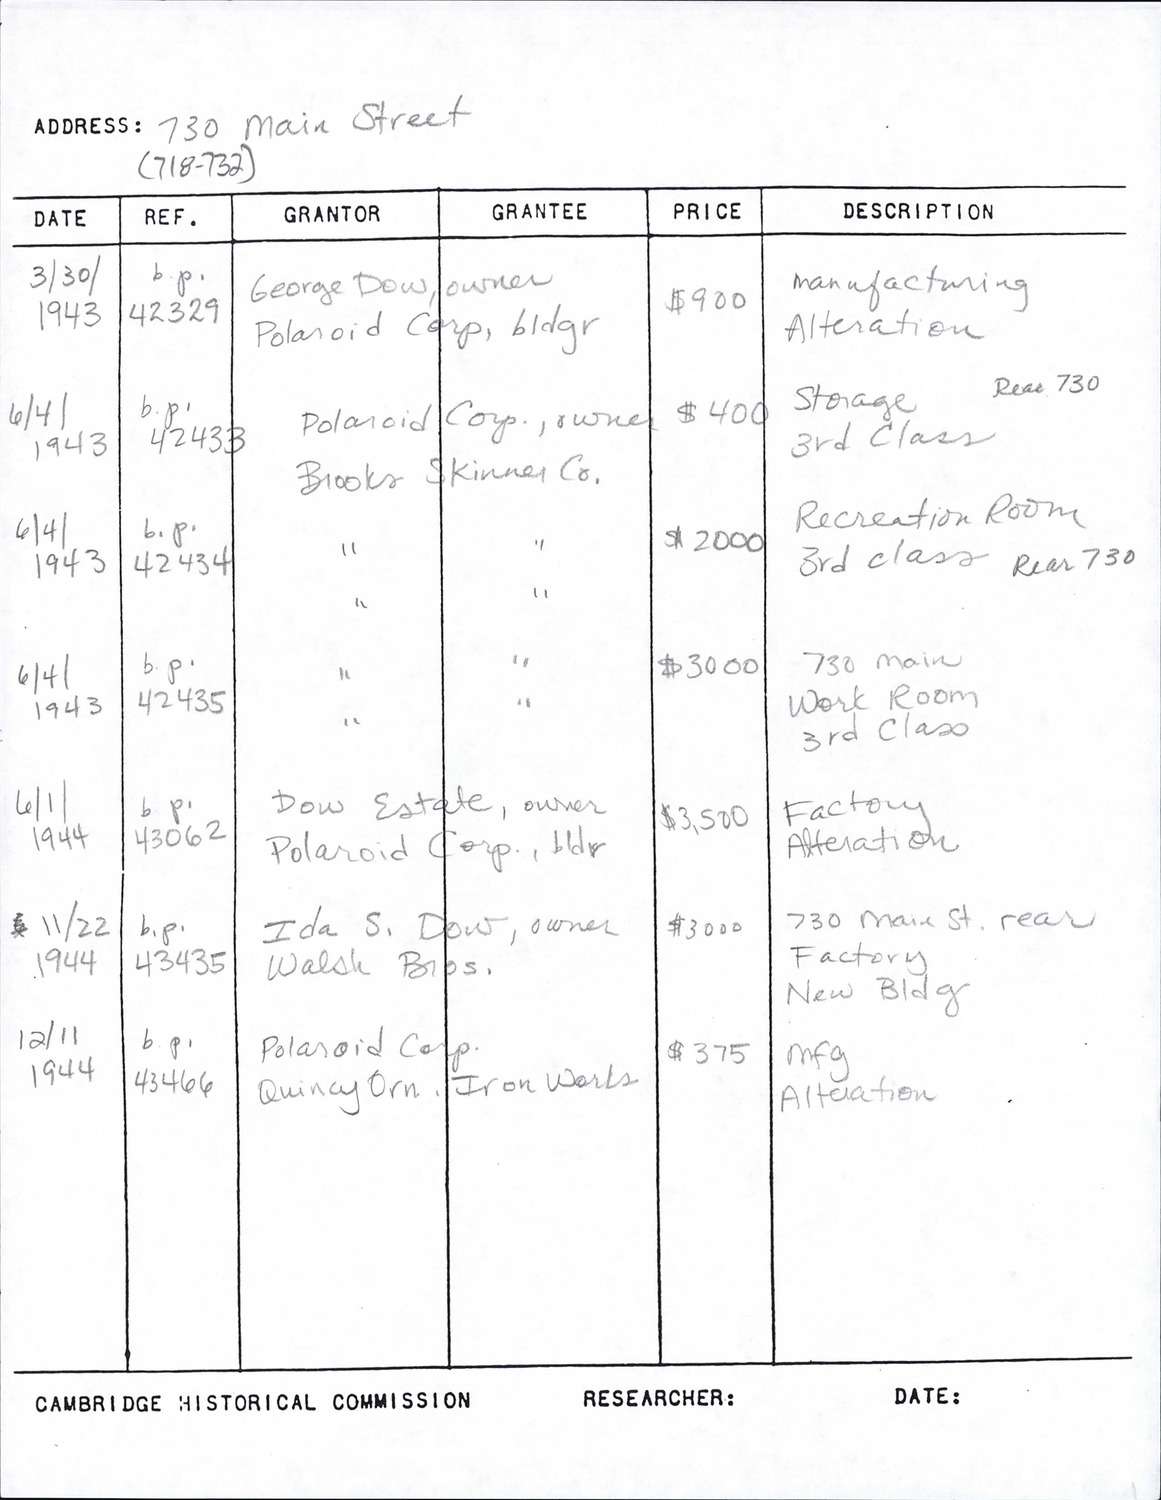 ADDRESS: 730 Main Street
(718-732)
DATE REF. GRANTOR GRANTEE PRICE DESCRIPTION
3/30/ b.p. George Dow, owner $900 manufacturing
1943 42329 Polaroid Corp, bldgr Alteration
6/4/ b.p. Polaroid Corp., owner $400 Storage Rear 730
1943 42433 Brooks Skinner Co. 3rd Class
6/4/ b.p. " " $2000 Recreation Room
1943 42434 " " 3rd class Rear 730
6/4/ b.p. " " $3000 730 Main
1943 42435 " " Work Room
3rd Class
6/1/ b.p. Dow Estate, owner $3,500 Factory
1944 43062 Polaroid Corp., bldr Alteration
11/22 b.p. Ida S. Dow, owner $3000 730 Main St. rear
1944 43435 Walsh Bros. Factory
New Bldg
12/11 b.p. Polaroid Corp. $375 mfg
1944 43466 Quincy Orn. Iron Works Alteration
CAMBRIDGE HISTORICAL COMMISSION RESEARCHER: DATE: